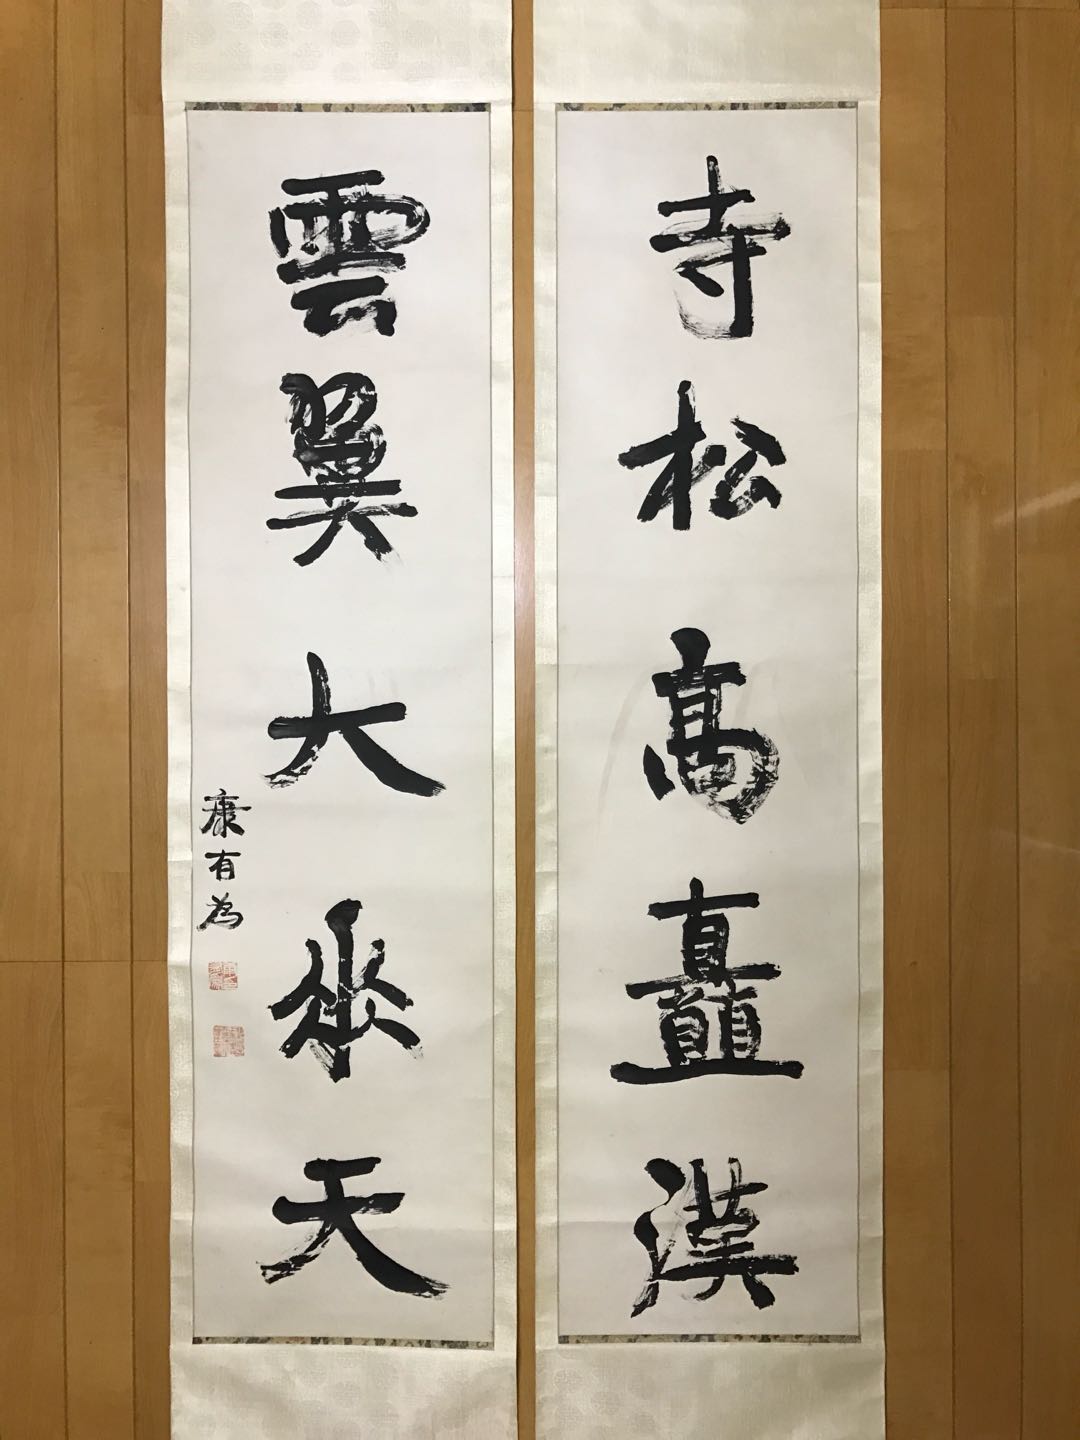 寺松高矗漢
雲翼大垂天
康有為